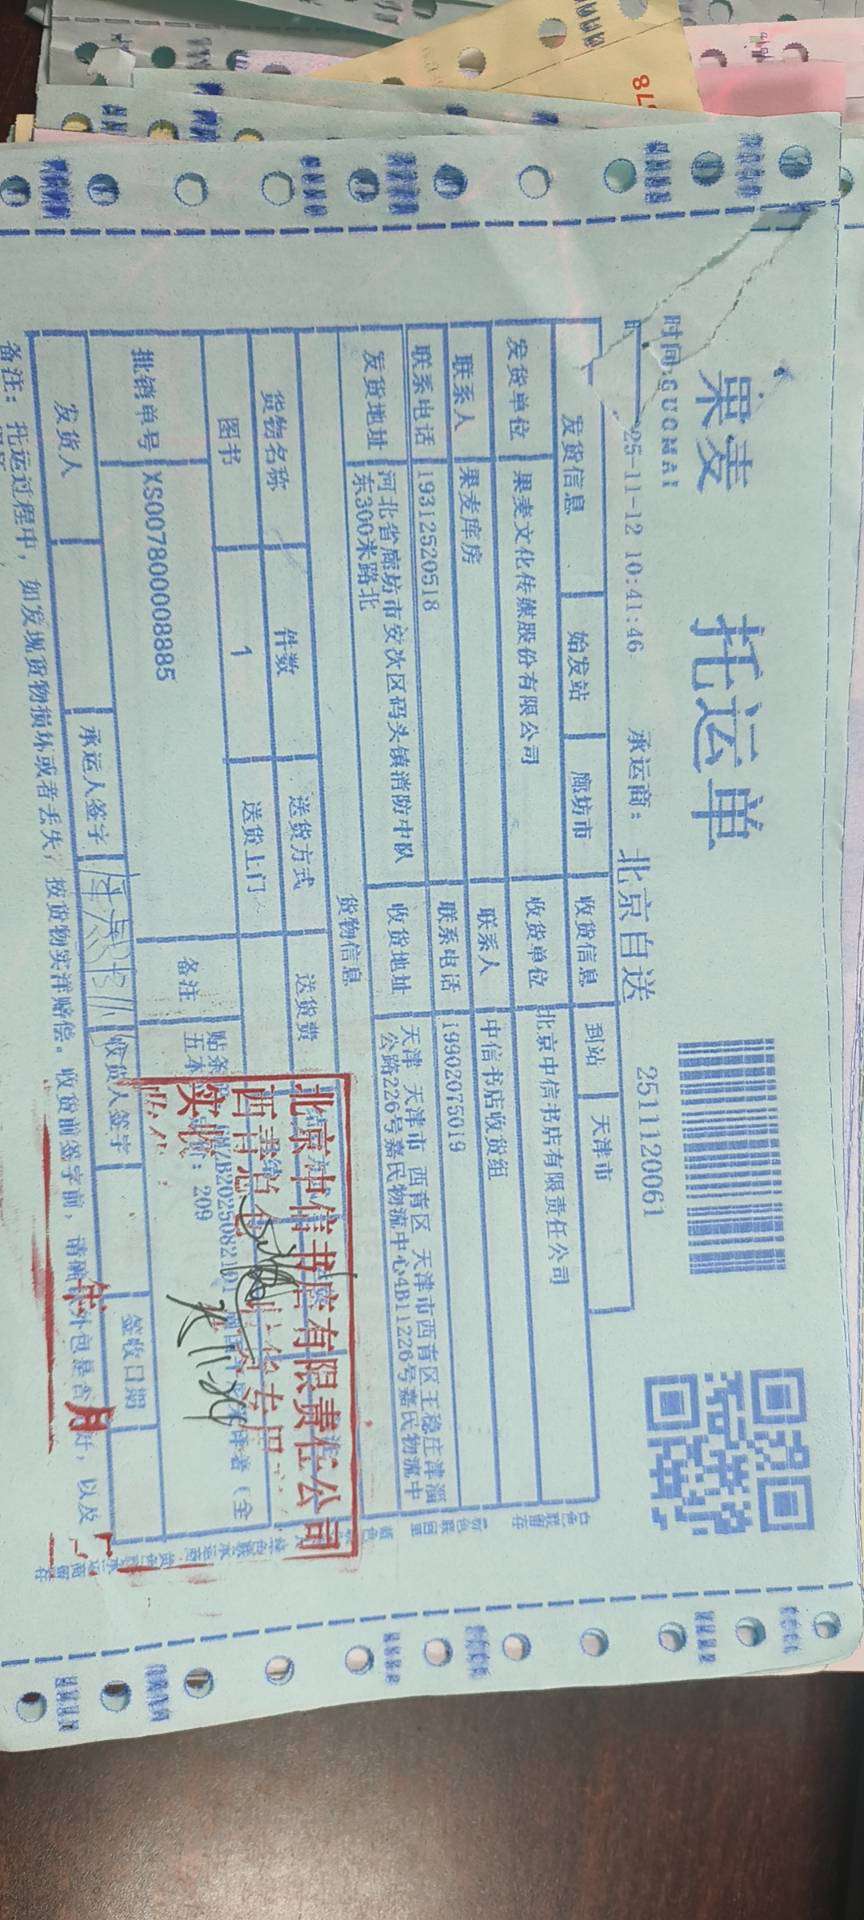 果麦 托运单
GUOMAI
2511120061
时间: 25-11-12 10:41:46 承运商: 北京自送
发货信息 始发站 廊坊市 收货信息 到站 天津市
发货单位 果麦文化传媒股份有限公司 收货单位 北京中信书店有限责任公司
联系人 果麦库房 联系人 中信书店收货组
联系电话 19312520518 联系电话 19902075019
发货地址 河北省廊坊市安次区码头镇消防中队
东300米路北
收货地址 天津 天津市 西青区 天津市西青区王稳庄津淄
公路226号嘉民物流中心4B11226号嘉民物流中
货物信息
货物名称 件数 送货方式 送货费
图书 1 送货上门
批销单号 XS007800008885 备注 贴条
五本 : 209
译者（全
发货人 承运人签字 收货人签字 签收日期
备注: 托运过程中, 如发现货物损坏或者丢失, 按货物实洋赔偿。收货前签字前, 请 外包是否 好, 以及
北京中信书店有限责任公司
实收
年 月